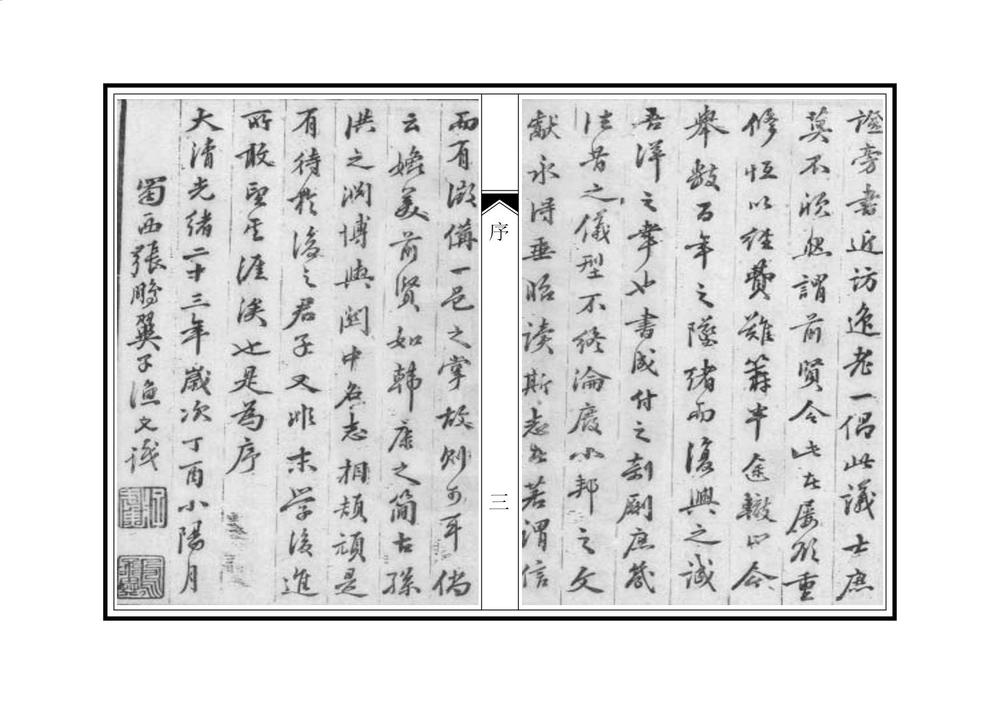 證旁書近訪逸老一倡此議士庶
莫不欣然謂前賢令此在屢欲重
修恆以經費難籌半途輟止今
舉數百年之墜緒而復興之誠
吾洋之幸也書成付之剞劂庶幾
往昔之儀型不終淪廢小邦之文
獻永得垂昭读斯志者若謂信
而有徵備一邑之掌故則可耳倘
云媲美前賢如韓康之简古孫
洪之渊博與関中名志相頡頏是
有待於後之君子又非末学後進
所敢望其涯涘也是為序
大清光緒二十三年歲次丁酉小陽月
蜀西張鵬翼子漁文識
序
三